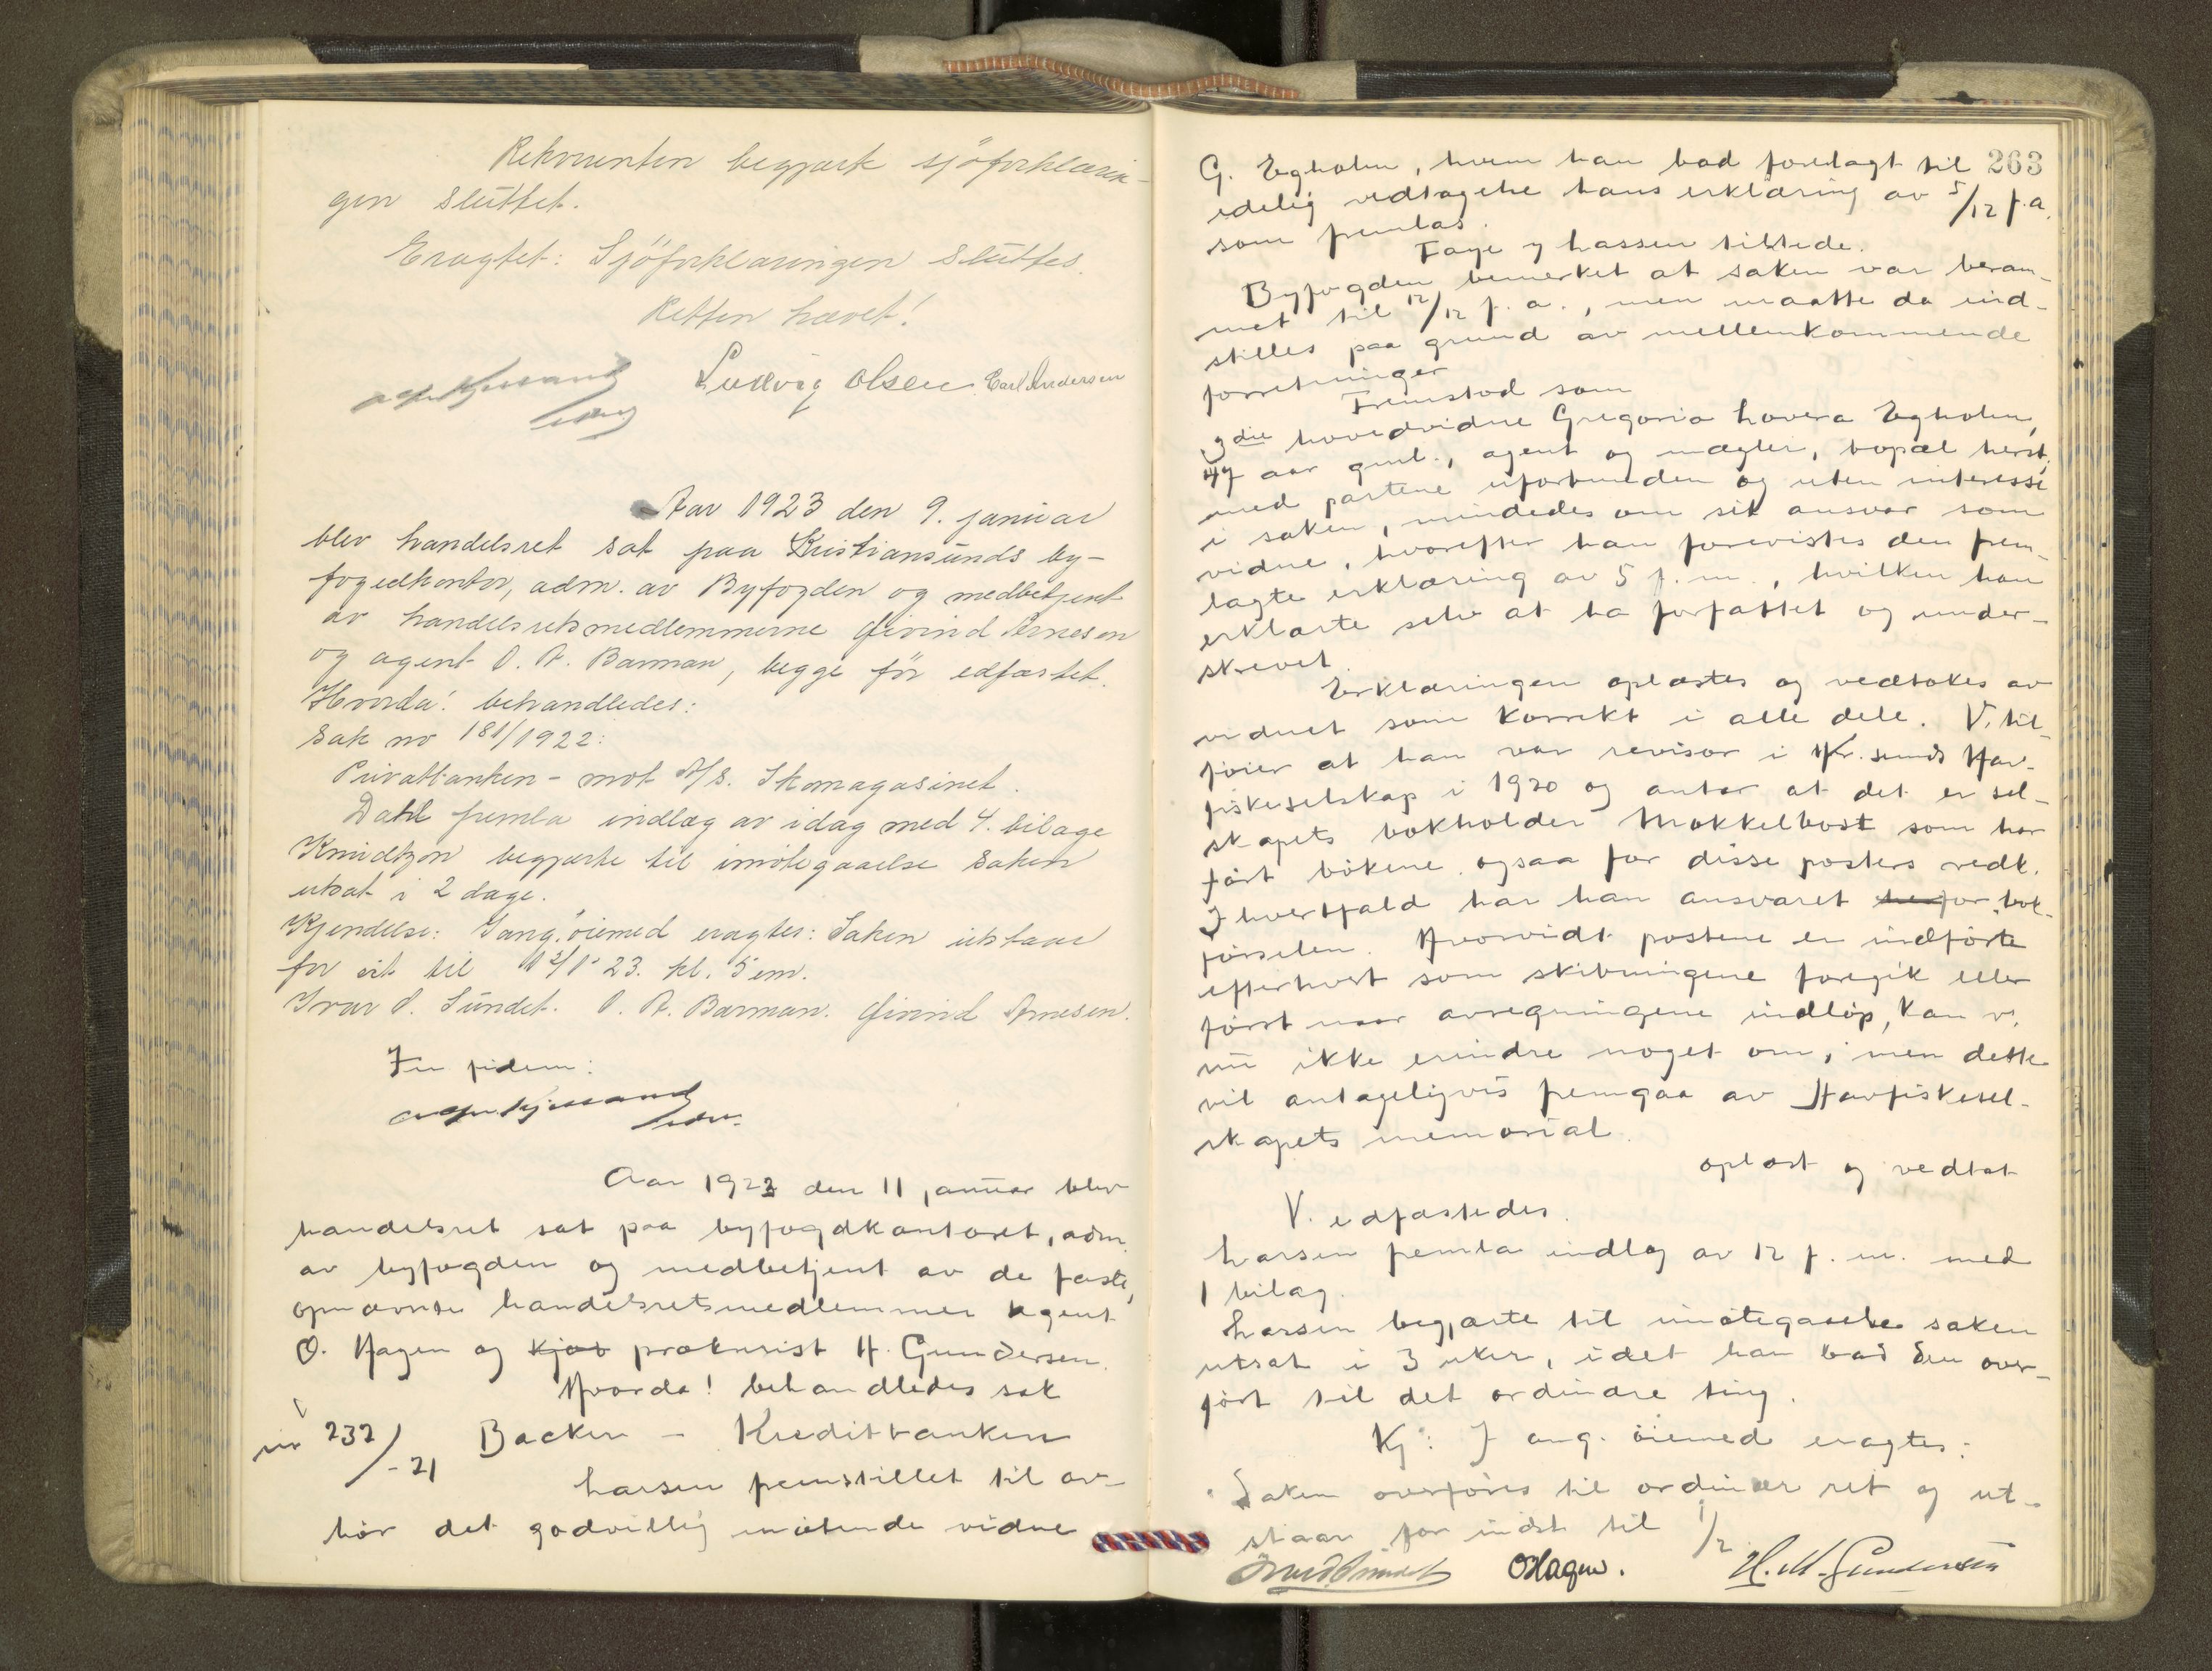 Rekvirenten begjærte sjöforklarin-
gen sluttet.
Eragtet: Sjöforklaringen sluttes.
Retten hævet!
Ludvig Olsen Carl Andersen
Aar 1923 den 9. januar
blev handelsret sat paa Kristiansunds by-
fogedkontor, adm. av Byfogden og medbetjent
av handelsretsmedlemmerne Öivind Arnesen
og agent O. A. Barman, begge för edfæstet.
Hvorda! behandledes:
Sak no 181/1922:
Privatbanken - mot A/S. Skomagasinet.
Dahl fremla indlæg av idag med 4. bilage
Knudtzon begjærte til imötegaaelse saken
utsat i 2 dage.
Kjendelse: I ang. öiemed eragtes: Saken utstaar
for vit til 12/1 23. kl. 5 em.
Ivar S. Sundet. O. A. Barman. Öivind Arnesen.
In fidem:
Aar 1923 den 11 januar blev
handelsret sat paa byfogdkontoret, adm.
av byfogden og medbetjent av de faste,
opnævnte handelsretsmedlemmer agent
O. Hagen og kjøb prokurist H. Gundersen.
Hvorda! behandledes sak
nr 232/-21 Backer - Kreditbanken
Larsen fremstillet til av-
hör det godvillig mötende vidne
263
G. Egholm, hvem han bad forelagt til
edelig vedtagelse hans erklæring av 5/12 f.a.
som fremlas.
Faye og Larsen tilstede.
Byfogden bemerket at saken var beram-
met til 12/12 f. a., men maatte da ind-
stilles paa grund av mellemkommende
forretninger
Fremstod som
3die hovedvidne Gregorio Lovera Egholm,
47 aar gml., agent og mægler, bopæl herst,
med partene uforbunden og uten interesse
i saken, mindedes om sit ansvar som
vidne, hvorefter han forevistes den frem-
lagte erklæring av 5 f. m., hvilken han
erklærte selv at ha forfattet og under-
skrevet.
Erklæringen oplæstes og vedtokes av
vidnet som korrekt i alle dele. V. til-
föier at han var revisor i Kr.sunds Hav-
fiskeselskap i 1920 og antar at det er sel-
skapets bokholder Mokkelbost som har
fört bökene ogsaa for disse posters vedk.
I hvertfald har han ansvaret for bok-
förselen. Hvorvidt postene er indförte
efterhvert som skibningene foregik eller
först naar avregningene indlöp, kan v.
nu ikke erindre noget om, men dette
vil antageligvis fremgaa av Havfiskesel-
skapets memorial.
oplæst og vedtat
V. edfæstedes.
Larsen fremla indlæg av 12 f. m. med
1 bilag.
Larsen begjærte til imötegaaelse saken
utsat i 3 uker, idet han bad den over-
fört til det ordinære ting.
Kj: I ang. öiemed eragtes:
Saken overföres til ordinær ret og ut-
staar for indst til 1/2
Ivar S. Sundet OHagen. H. M. Gundersen